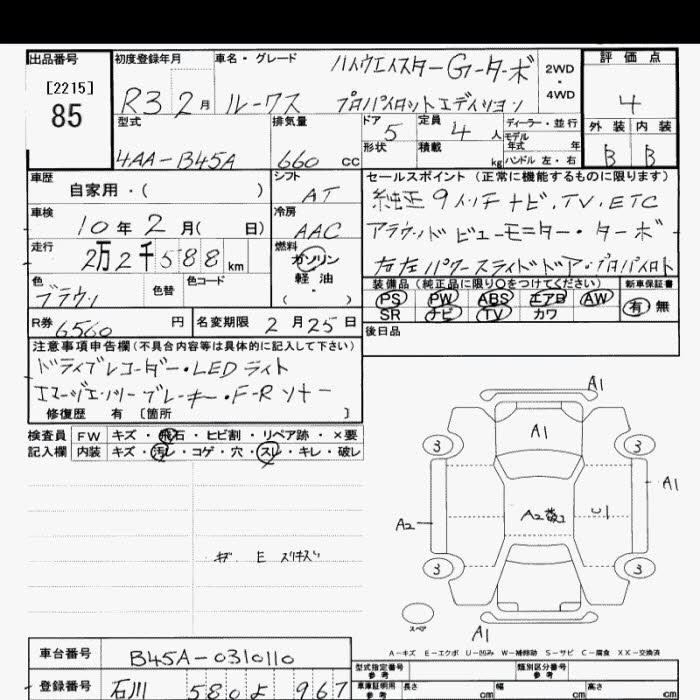 出品番号 初度登録年月 車名・グレード ハイウェイスターGターボ 2WD・4WD 評価点
[2215] 85 R3 2月 ルークス プロパイロットエディション 4
型式 排気量 ドア 5 定員 4人 ディーラー・並行 外装 内装
4AA-B45A 660 cc 形状 積載 kg モデル年式 年 ハンドル 左・右 B B
車歴 自家用・( ) シフト AT セールスポイント (正常に機能するものに限ります)
車検 10年2月( 日) 冷房 AAC 純正9インチナビ,TV,ETC
走行 2万2千588km 燃料 ガソリン 軽油 ( ・ ) アラウンドビューモニター・ターボ
色 ブラウン 色替 色コード 右左パワースライドドア・プロパイロット
装備品 (純正品に限り○をつけてください) 新車保証書
PS PW ABS エアB AW 有 無
SR ナビ TV カワ
R券 6560 円 名変期限 2月25日 後日品
注意事項申告欄(不具合内容等は具体的に記入して下さい)
ドライブレコーダー・LEDライト
エマージェンシーブレーキ・F-Rソナー
修復歴 有 〔箇所 〕
検査員 FW キズ・飛石・ヒビ割・リペア跡・×要
記入欄 内装 キズ・汚レ・コゲ・穴・スレ・キレ・破レ
A1
3 A1 3
A1
A2 A2 U1
キズ E スリキズ
3 3
スペア A1
A-キズ E-エクボ U-凹み W-補修跡 S-サビ C-腐食 XX-交換済
車台番号 B45A-0310110 型式指定番号 参考 類別区分番号 参考
登録番号 石川 580 よ 967 車庫証明用 参考 長さ cm 幅 cm 高さ cm